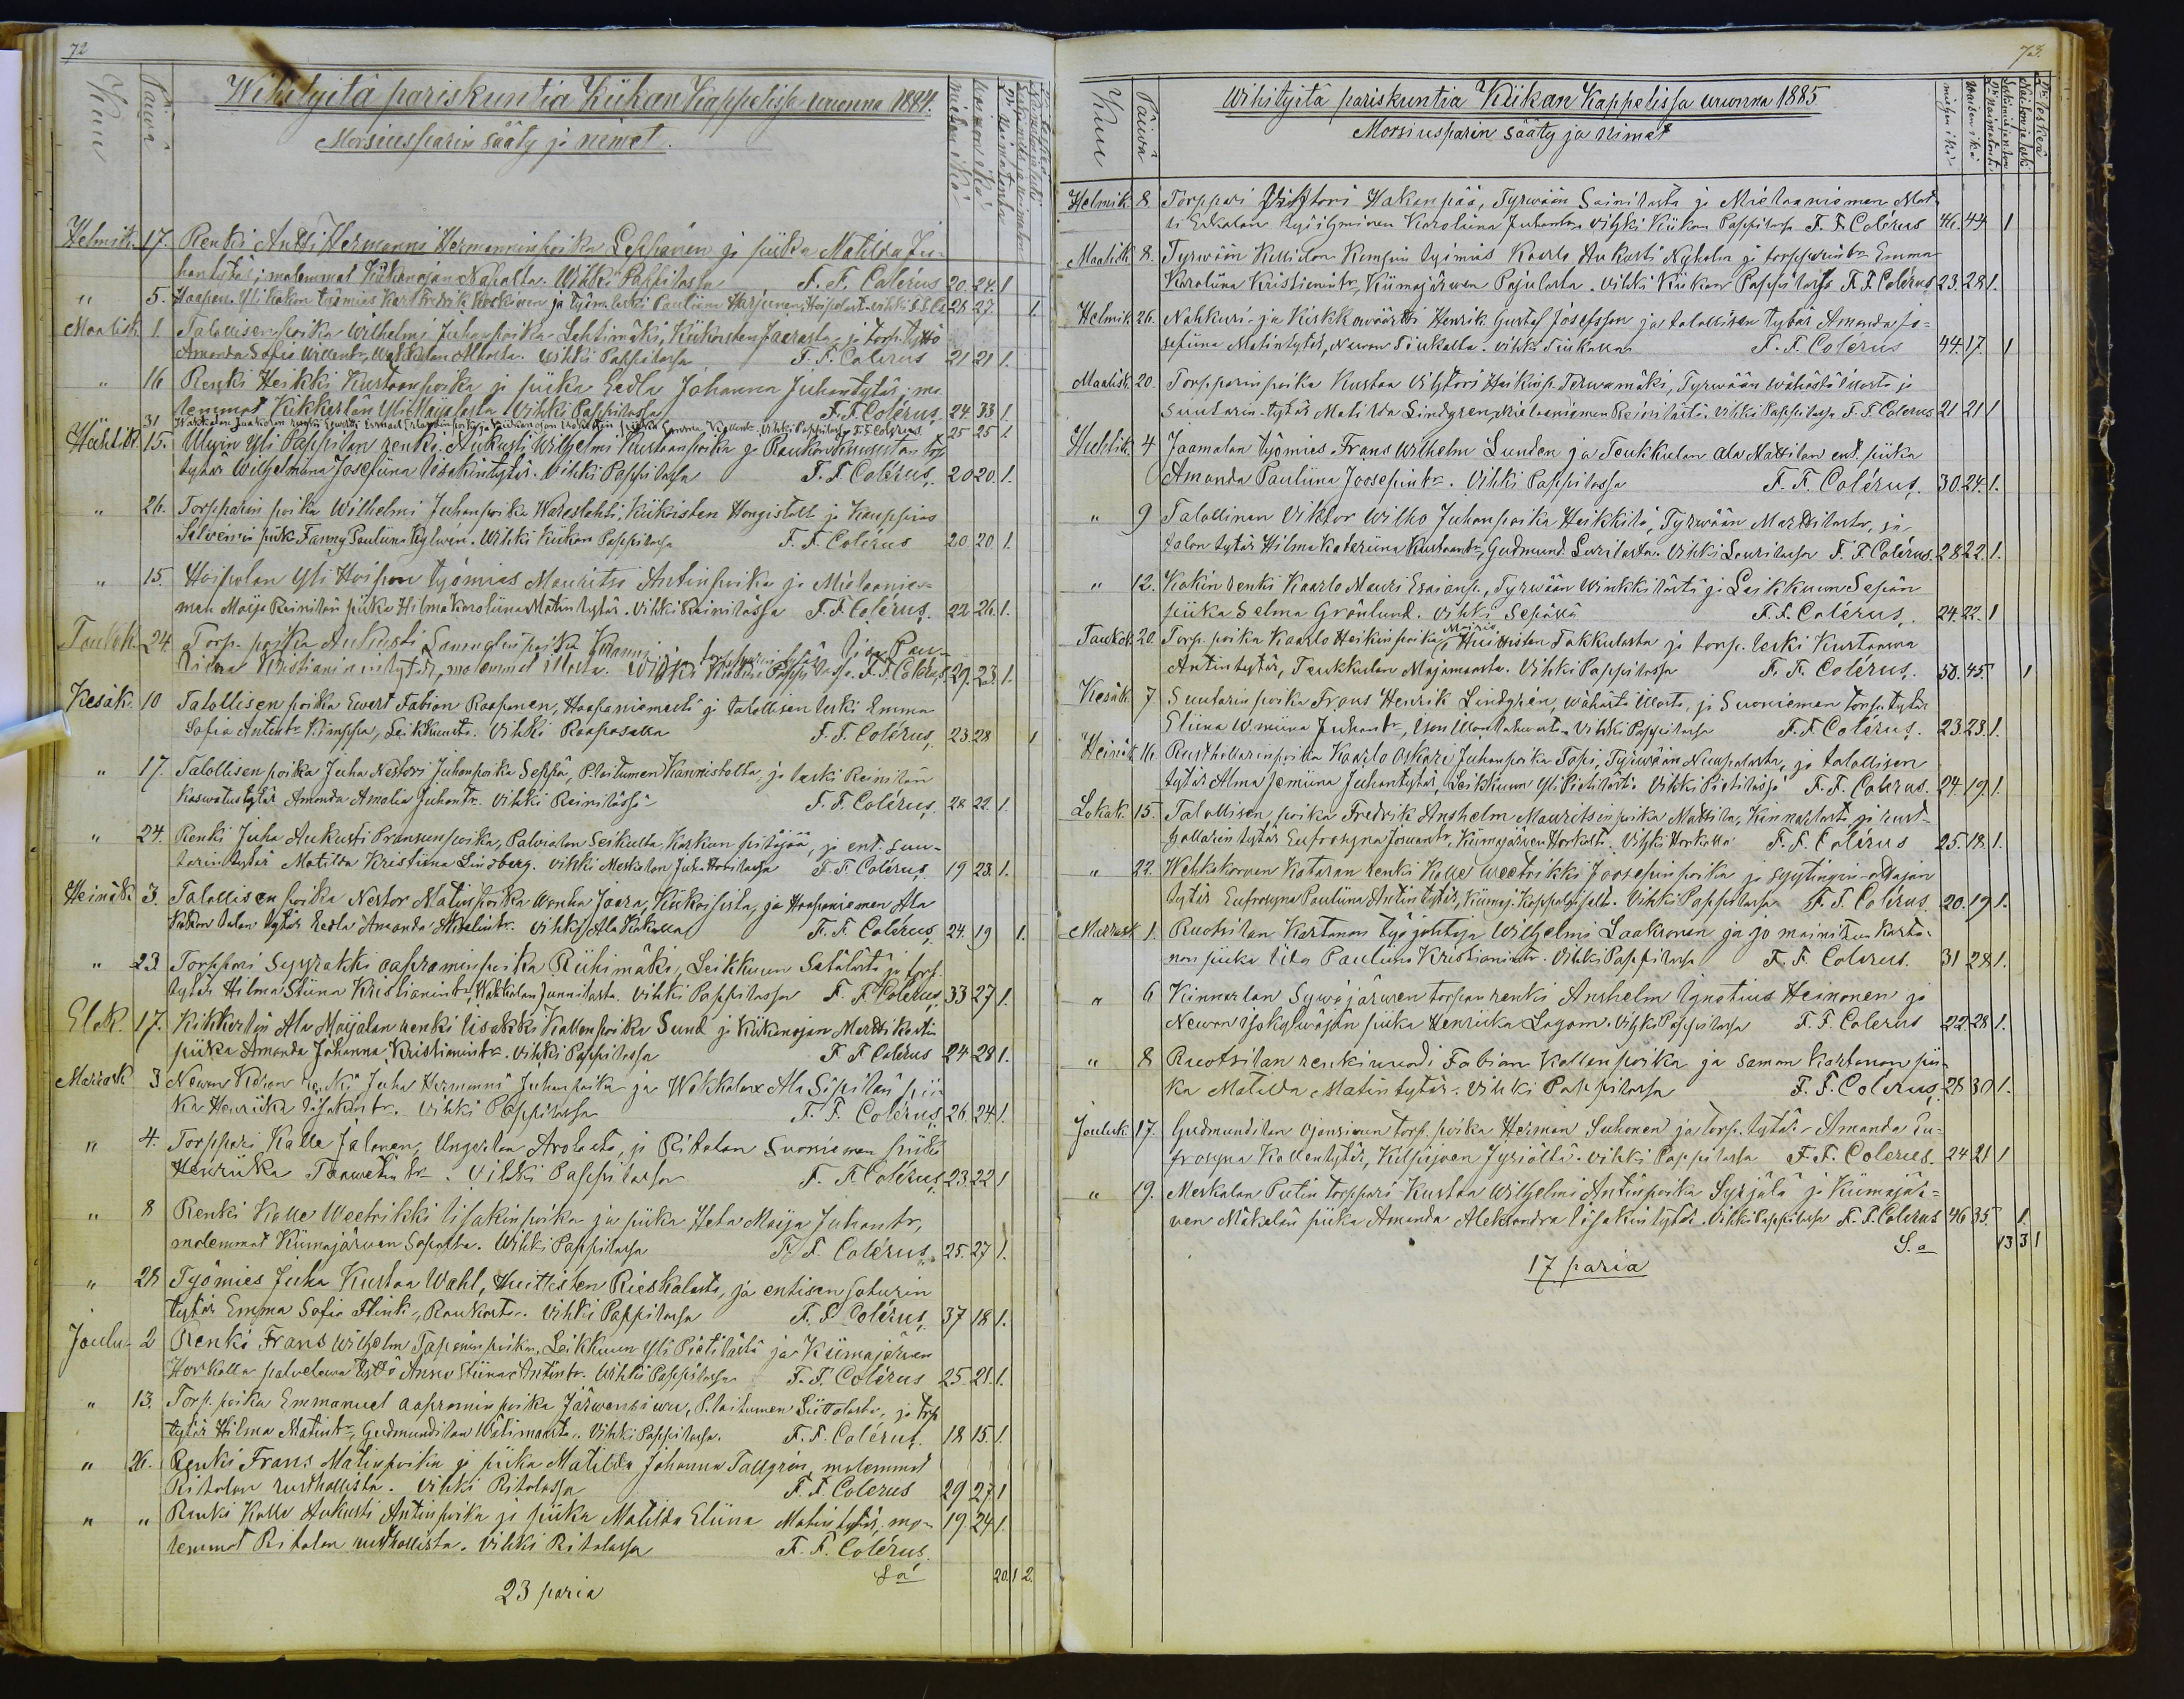 72
Kuu Päiwä Wihityitä pariskuntia Kiikan Kappelissa wuonna 1884. miehen ikä waimon ikä
Morsiusparin sääty ja nimet.
Helmik. 17. Renki Antti Hermanni Hermanninpoika Leppänen ja piika Matilda Ju-
hantytär; molemmat Kiikanojan Nahalta. Wihki Pappilassa F. F. Colérus 20 24. 1
" 5. Haapan. Yli Kakon työmies Karl Fredrik ja Työm. leski Pauliina Harjunen, vihki F. F. Co. 28 27. 1.
Maalisk. 1. Talollisen poika Wilhelmi Juhanpoika Lehtimäki, Kiikoisten Jaarasta, ja torp. tyttö
Amanda Sofia Willentr, Wakkalan Alholta. Vihki Pappilassa F. F. Colérus 21 21 1.
" 16 Renki Heikki Kustaanpoika ja piika Eedla Johanna Juhantytär; mo-
lemmat Kikkerlän Yli Maijalasta Vihki Pappilassa F. F. Colérus, 24 33 1.
31 Wihki Pappilassa F. F. Colérus 25 25 1.
Huhtik. 15. Yli Pappilan renki Aukusti Wilhelmi Kustaanpoika ja Raukon torp.
tytär Wilhelmiina Josefiina Iisakintytär. Vihki Pappilassa F. F. Colérus, 20 20. 1.
" 26. Torpparin poika Wilhelmi Juhanpoika Wareslahti, Kiikoisten Hongistolt ja Kauppias
Salvenin piik. Fanny Pauliina Kylwén. Wihki Kiikan Pappilassa F. F. Colérus 20 20 1.
" 15. Hoipolan Yli Hoipon työmies Mauritsi Antinpoika ja Mieloonie-
men Maija Reinilän piika Hilma Karoliina Matintytär. Vihki Reinilässä F. F. Colérus, 22 26. 1.
Toukok. 24 Torp. poika Aukusti Samuelinpoika torpparin tytär Liisa Pau-
liina Kristianintytär, molemmat Illosta. Wihki Kiikan Pappilassa. F. F. Colérus, 29. 23. 1.
Kesäk. 10 Talollisen poika Ewert Fabian Raaponen, Haapaniemestä ja talollisen leski Emma
Sofia Antintr Pimppa, Leikkuusta. Vihki Raaposalla F. F. Colérus, 23 28 1
" 17. Talollisen poika Juha Nestori Juhanpoika Seppä, Plaitumen Kannistolta, ja leski Reinilän
kaswatustytär Amanda Amalia Juhantr. Vihki Reinilässä F. F. Colérus, 28 22. 1.
" 24. Renki Juha Aukusti Fransunpoika, Palvialan Seikulta, Karkun pitäjää, ja ent. suu-
tarin tytär Matilda Kristiina Lindberg. Vihki Meskalan F. F. Colérus, 19 23. 1.
Heinäk. 3. Talollisen poika Nestor Matinpoika Wanha Jaara, Kiikoisista, ja Haapaniemen Ala
Kakon talon tytär Eedla Amanda Mikelintr. Vihki Ala Kakolla F. F. Colérus, 24. 19 1.
" 23 Torppari Syyrakki Aapraminpoika Riihimäki, Leikkuun Satalasta ja torp.
tytär Hilma Stiina Kristianintr, Wakkalan Junnilasta. Vihki Pappilassa F. F. Colérus, 33 27 1.
Elok. 17. Kikkerlän Ala Maijalan renki Iisakki Kallenpoika Sund ja Kiikanojan Merttikastin
piika Amanda Johanna Kristianintr. Vihki Pappilassa F. F. Colérus 24 28 1.
Marrask 3 Newon Kedon renki Juha Hermanni Juhanpoika ja Wakkalan Ala Sipilän pii-
ka Henriika Iisakintr. Vihki Pappilassa F. F. Colérus, 26 24 1.
" 4. Torppari Kalle Jalonen, Ungerlan Arolasta, ja Ritalan Suoniemen piika
Henriika Taawetintr. Vihki Pappilassa F. F. Colérus, 23 22 1
" 8 Renki Kalle Weetrikki Iisakinpoika ja piika Heta Maija Juhantr,
molemmat Kiimajärven Sepältä. Wihki Pappilassa F. F. Colérus, 25. 27 1.
" 28 Työmies Juha Kustaa Wahl, Huittisten Rieskalasta, ja entisen soturin
tytär Emma Sofia Flink, Raukosta. Vihki Pappilassa F. F. Colérus, 37 18 1.
Joulu- 2 Renki Frans Wilhelm Tapaninpoika, Leikkuun Yli Pietilästä ja Kiimajärwen
Horkalla palvelewa tyttö Anna Stiina Antintr. Wihki Pappilassa F. F. Colérus 25. 21. 1.
" 13. Torp. poika Emmanuel Aapraminpoika Järwensiwu, Plaitumen Liitolasta, ja torp
tytär Hilma Matintr, Gudmundilan Wälimaasta. Vihki Pappilassa. F. F. Colérus. 18 15. 1.
" 26. Renki Frans Matinpoika ja piika Matilda Johanna Tallgrén, molemmat
Ritalan rusthollista. Vihki Ritalassa F. F. Colerus 29 27 1
" " Renki Kalle Aukusti Antinpoika ja piika Matilda Eliina Matintytär, mo- 19. 24 1.
lemmat Ritalan rusthollista. Vihki Ritalassa F. F. Colérus.
S:a 20. 1 2.
23 paria
73.
Kuu Päiwä Wihityitä pariskuntia Kiikan Kappelissa wuonna 1885 miehen ikä waimon ikä
Morsiusparin sääty ja nimet
Helmik. 8. Torppari Viktori Hakanpää, Tyrwään Sainilasta ja Mieloonieman Mat-
ti Erkalan Karoliina Juhantr. Vihki Kiikan Pappilassa F. F. Colérus 46. 44 1
Maalisk. 8. Tyrwään työmies Kaarlo Aukusti Nyholm ja torpparintr. Emma
Karoliina Kristianintr, Kiimajärwen Pajulasta. Vihki Kiikan Pappilassa F. F. Colérus 23. 28 1.
Helmik. 26. Nahkuri ja Kirkkowäärtti Henrik Gustaf Josefsson ja talollisen tytär Amanda Jo-
sefiina Matintytär, Newon Fiukalta. Vihki Fiukalla F. F. Colérus 44. 17. 1
Maalisk. 20. Torpparin poika Kustaa Vihtori Heikinp. Terwamäki, Tyrwään wähästä Illosta ja
suutarin-tytär Matilda Lindgren, Mieloonieman Reinilästä. Vihki Pappilassa F. F. Colérus 21 21 1
Huhtik. 4 Jaamalan työmies Frans Wilhelm Lunden ja Teukkulan Ala Mattilan ent. piika
Amanda Pauliina Joosepintr. Vihki Pappilassa F. F. Colérus, 30. 24. 1.
" 9 Talollinen Viktor Wilho Juhanpoika Heikkilä, Tyrwään Marttilasta, ja
talon tytär Hilma Kateriina Kustaantr, Gudmund. Laurilasta. Vihki Laurilassa F. F. Colérus. 28 22. 1.
" 12. Kakin renki Kaarlo Mauri Esaianp., Tyrwään Winkkilästä ja Leikkuun Sepän
piika Selma Grönlund. Vihki Sepällä F. F. Colérus, 24. 22. 1
Toukok. 20. Torp. poika Kaarlo Heikinpoika Huittisten Takkulasta ja torp. leski Kustaawa
Antintytär, Teukkulan Majamaasta. Vihki Pappilassa F. F. Colérus, 50. 45. 1
Kesäk. 7 Suutarin poika Frans Henrik Lindgrén, wähästä Illosta, ja Suoniemen torp. tytär
Eliina Wmiina Juhantr, Vihki Pappilassa F. F. Colérus. 23. 23. 1.
Heinäk. 16. Rusthollarin poika Kaarlo Oskari Juhanpoika Topi, Tyrwään Nuupalasta, ja talollisen
tytär Alma Jemiina Juhantytär, Leikkuun Yli Pietilästä. Vihki Pietilässä F. F. Colérus. 24. 19. 1.
Lokak. 15. Talollisen poika Fredrik Anshelm Mauritsinpoika Mattila, Kinnarlasta ja rust-
hollarin tytär Eufrosyna Jowantr, Kiimajärwen Horkalta. Vihki Horkalla F. F. Colérus 25. 18. 1.
" 22. Wehkakorwen Kataran renki Kalle Weetrikki Joosepinpoika ja syytingin-ottajan
tytär Eufrosyna Pauliina Antintytär, Kiimaj. Vihki Pappilassa F. F. Colérus. 20. 19 1.
Marrask. 1. Ruotsilan Kartanon työjohtaja Wilhelmi Laakronen ja jo mainitun karta-
non piika Iita Pauliina Kristianintr. Vihki Pappilassa F. F. Colérus. 31 28 1.
" 6 Kinnarlan Sywäjärwen torpan renki Anshelm Ignatius Heinonen ja
Newon piika Henriika Lagom. Vihki Pappilassa F. F. Colérus 22 28 1.
" 8 Ruotsilan renkiwouti Fabian Kallenpoika ja saman Kartanon pii-
ka Matilda Matintytär. Vihki Pappilassa F. F. Colérus, 28 30 1.
Jouluk. 17. Gudmundilan Ojansiwun torp. poika Herman Suhonen ja torp. tytär Amanda Eu-
frosyna Kallentytär, Kilpijoen Jyriältä. Vihki Pappilassa F. F. Colérus. 24 21 1
" 19. Meskalan Putin torppari Kustaa Wilhelmi Antinpoika Syrjälä ja Kiimajär-
wen Mäkelän piika Amanda Aleksandra Iisakintytär. Vihki Pappilassa F. F. Colérus 46 35. 1.
S:a 13 3 1
17 paria